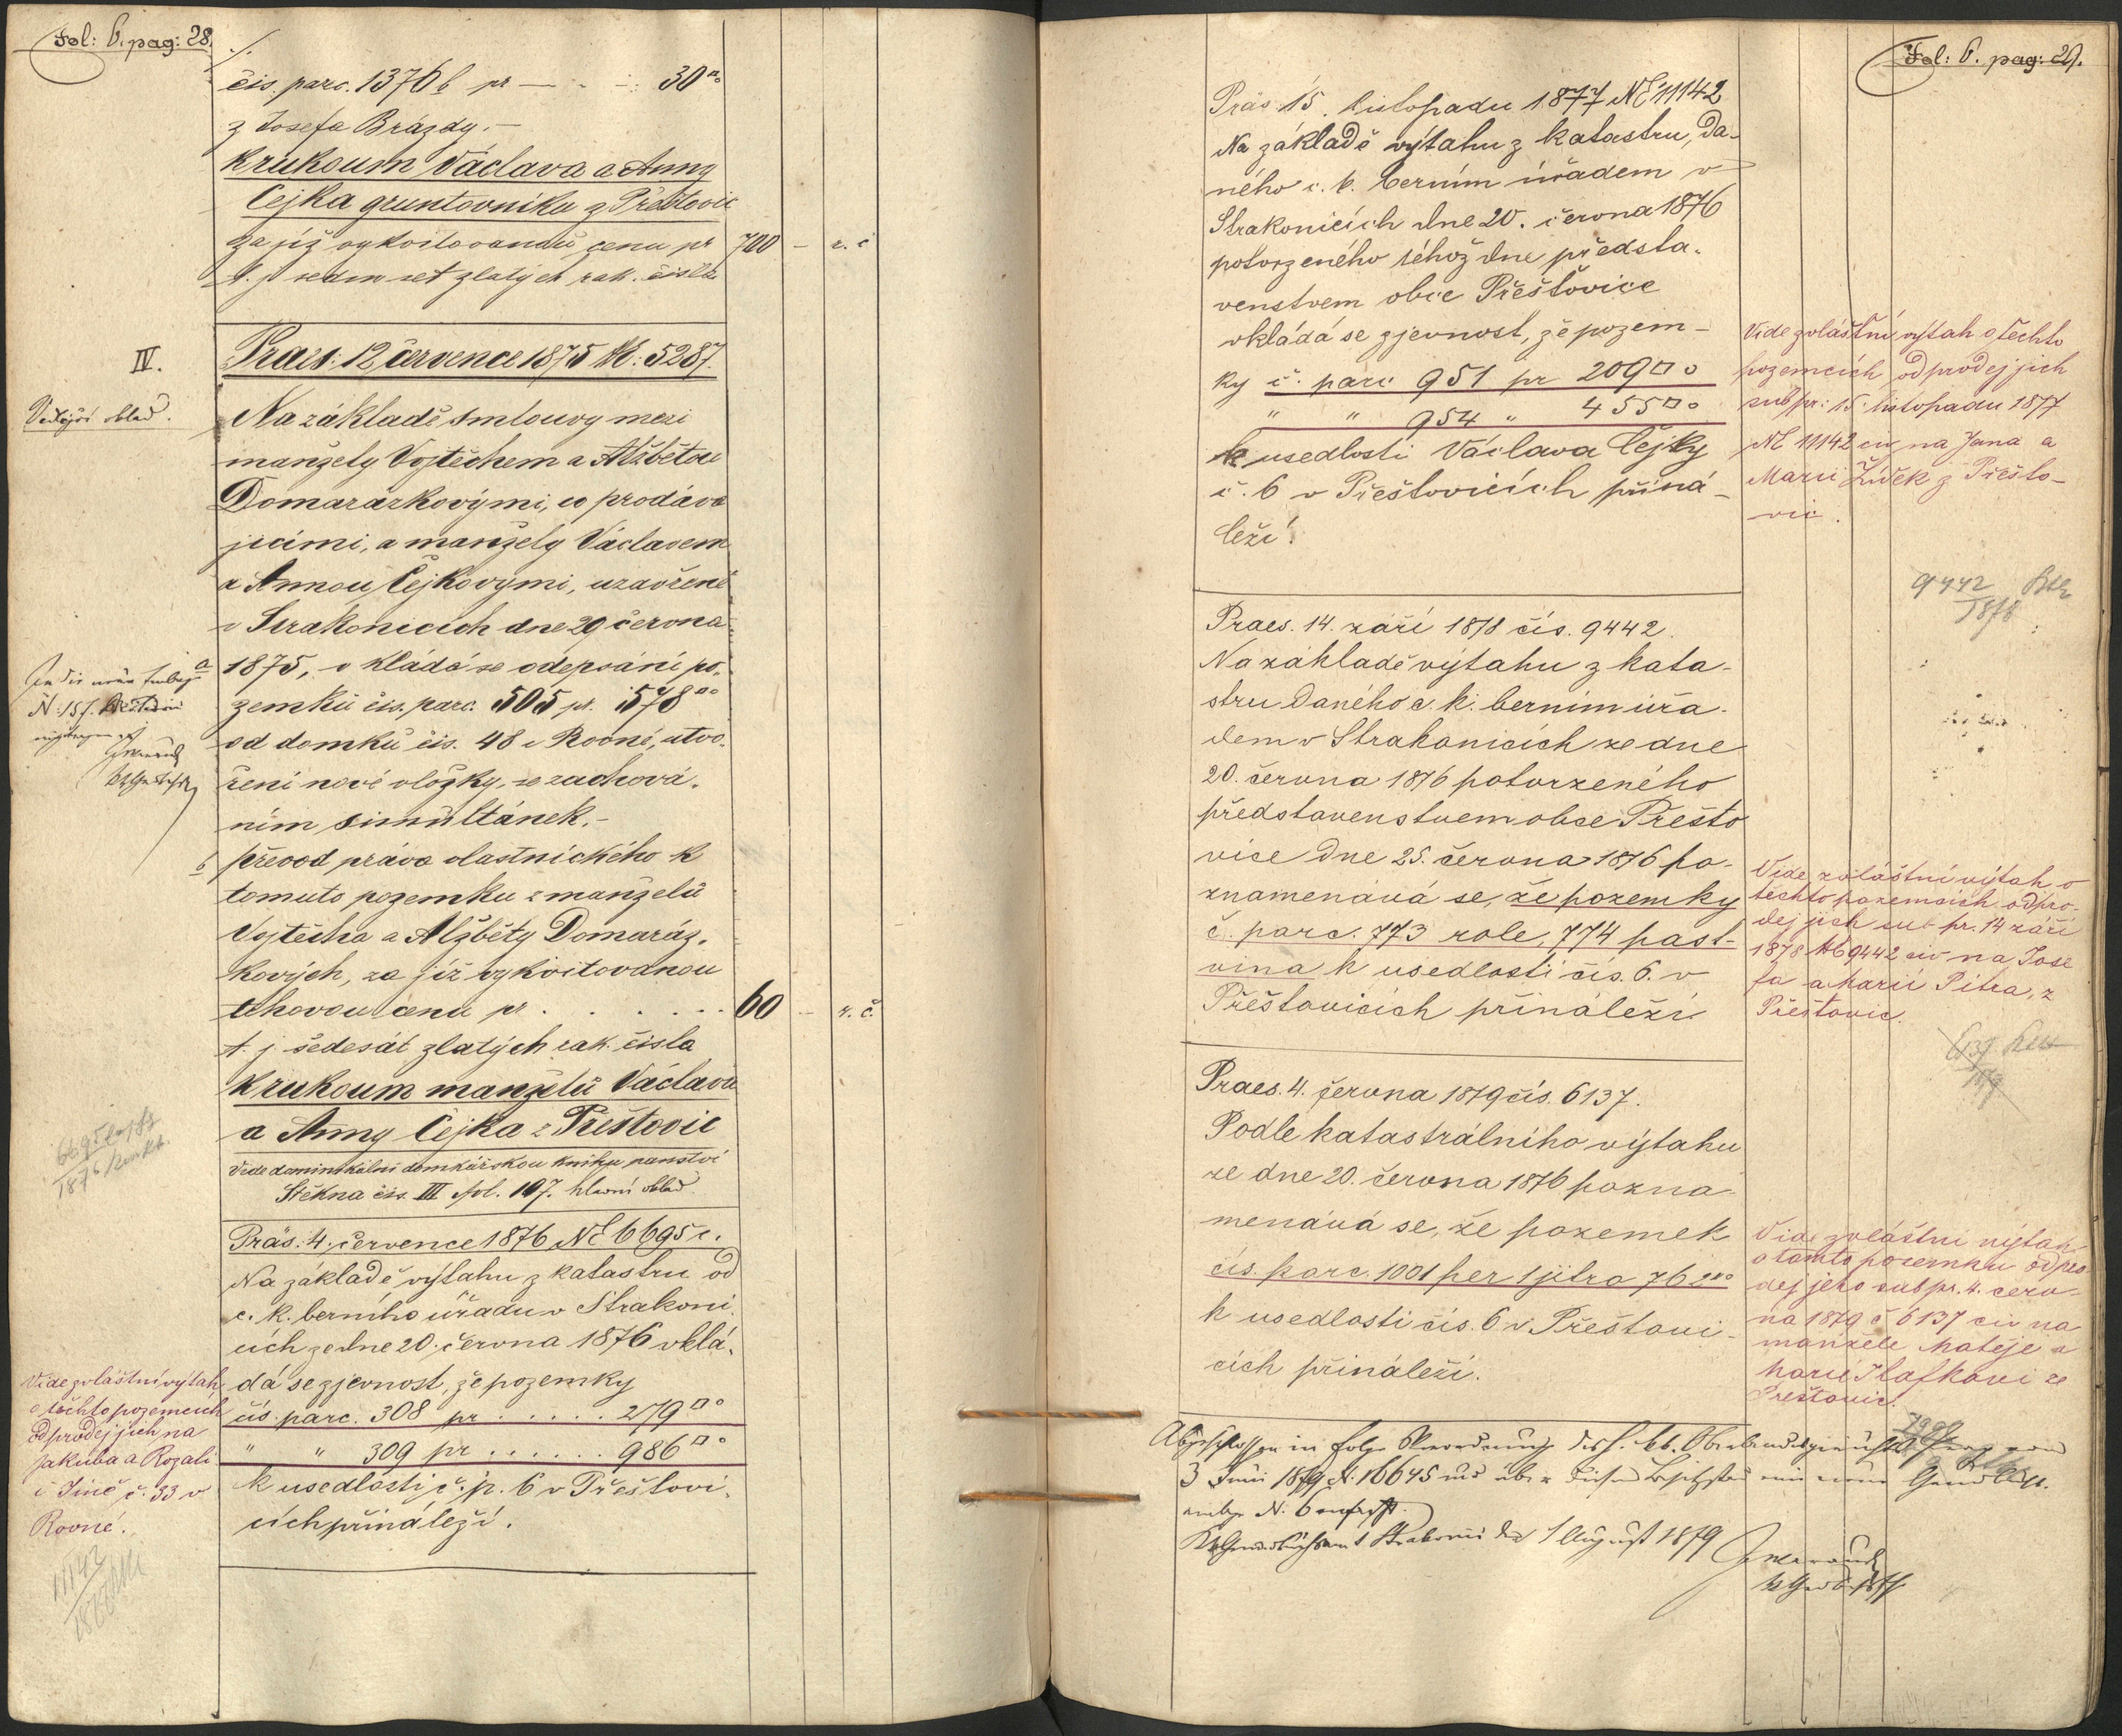 Fol: 6. pag: 28.
./.
čis. parc. 1376 b pr — - -: 30□°
z Josefa Brázdy.—
k rukoum Václava a Anny
Čejka gruntovníku z Přeštovic
za již vykvitovanou cenu pr 700 — r. č.
t. j. sedm set zlatých rak. čísla
IV.
Praes: 12 července 1875 №: 5287.
Vedlejší vklad.
Na základě smlouvy mezi
manžely Vojtěchem a Alžbětou
Domarázkovými, co prodáva
jícími, a manžely Václavem
a Annou Čejkovými, uzavřené
v Strakonicích dne 29 června
a 1875, vkládá se odepsání po-
zemků čis. parc. 505 pr. 578□°
od domků čís. 48 v Rovné, utvo-
ření nové vložky, se zachová-
ním simultánek.-
b převod práva vlastnického k
tomuto pozemku z manželů
Vojtěcha a Alžběty Domaráz-
kových, za již vykvitovanou
trhovou cenu pr . . . . . . 60 — r. č.
t. j. šedesát zlatých rak. čísla
k rukoum manželů Václava
a Anny Čejka z Přeštovic
Vide dominikální domkářskou knihu panství
Štěkna čís. III fol. 107. hlavní vklad.
Präs: 4. července 1876 NE 6695 c.
Na základě výtahu z katastru od
c. k. berního úřadu v Strakoni-
cích ze dne 20. června 1876 vklá-
dá se zjevnost, že pozemky
čís. parc. 308 pr . . . . . 279□°
" " 309 pr . . . . . . 986□°
k usedlosti č. p. 6 v Přeštovi-
cích přináleží.
Vide zvláštní výtah
o těchto pozemcích
odprodej jich na
Jakuba a Rozali
č. 33 v
Rovné.
11142
Fol: 6. pag: 29.
Präs. 15. listopadu 1877 NE 11142
Na základě výtahu z katastru, da-
ného c. k. berním úřadem v
Strakonicích dne 20. června 1876
potvrzeného téhož dne předsta-
venstvem obce Přeštovice
vkládá se zjevnost, že pozem-
ky č. parc 951 pr 209□°
" " 954 " 455□°
k usedlosti Václava Čejky
č. 6 v Přeštovicích přiná-
leží.
Vide zvláštní výtah o těchto
pozemcích odprodej jich
sub pr: 15. listopadu 1877
NE 11142 civ na Jana a
Marii Žídek z Přešto-
vic.
9442
1878
Praes. 14. září 1878 čís. 9442.
Na základě výtahu z kata-
stru daného c. k. berním úřa-
dem v Strakonicích ze dne
20. června 1876 potvrzeného
představenstvem obce Přešto
vice dne 25. června 1876 po-
znamenává se, že pozemky
č. parc. 773 role, 774 past-
vina k usedlosti čís. 6. v
Přeštovicích přináleží.
Vide zvláštní výtah o
těchto pozemcích odpro-
dej jich sub pr. 14 září
1878 № 9442 civ na Jose
fa a Marii Pitra, z
Přeštovic.
Praes. 4. června 1879 čís. 6137.
Podle katastrálního výtahu
ze dne 20. června 1876 pozna-
menává se, že pozemek
čís. parc. 1001 per 1 jitro 762□°
k usedlosti čís. 6 v Přeštovi-
cích přináleží.
Vide zvláštní výtah
o tomto pozemku odpro
dej jeho sub pr. 4. červ-
na 1879 č 6137 civ na
manžele Matěje a
Marii Hlafkovi ze
Přeštovic.
Abgeschlossen in Folge Verordnung des h. kk. Oberlandesgerichts Prag vom
3 Juni 1879 N: 16645 und über diesen Besitzstand eine neue Grundbuchs-
einlage N. 6 verfasst.
Strakonic den 1 August 1879